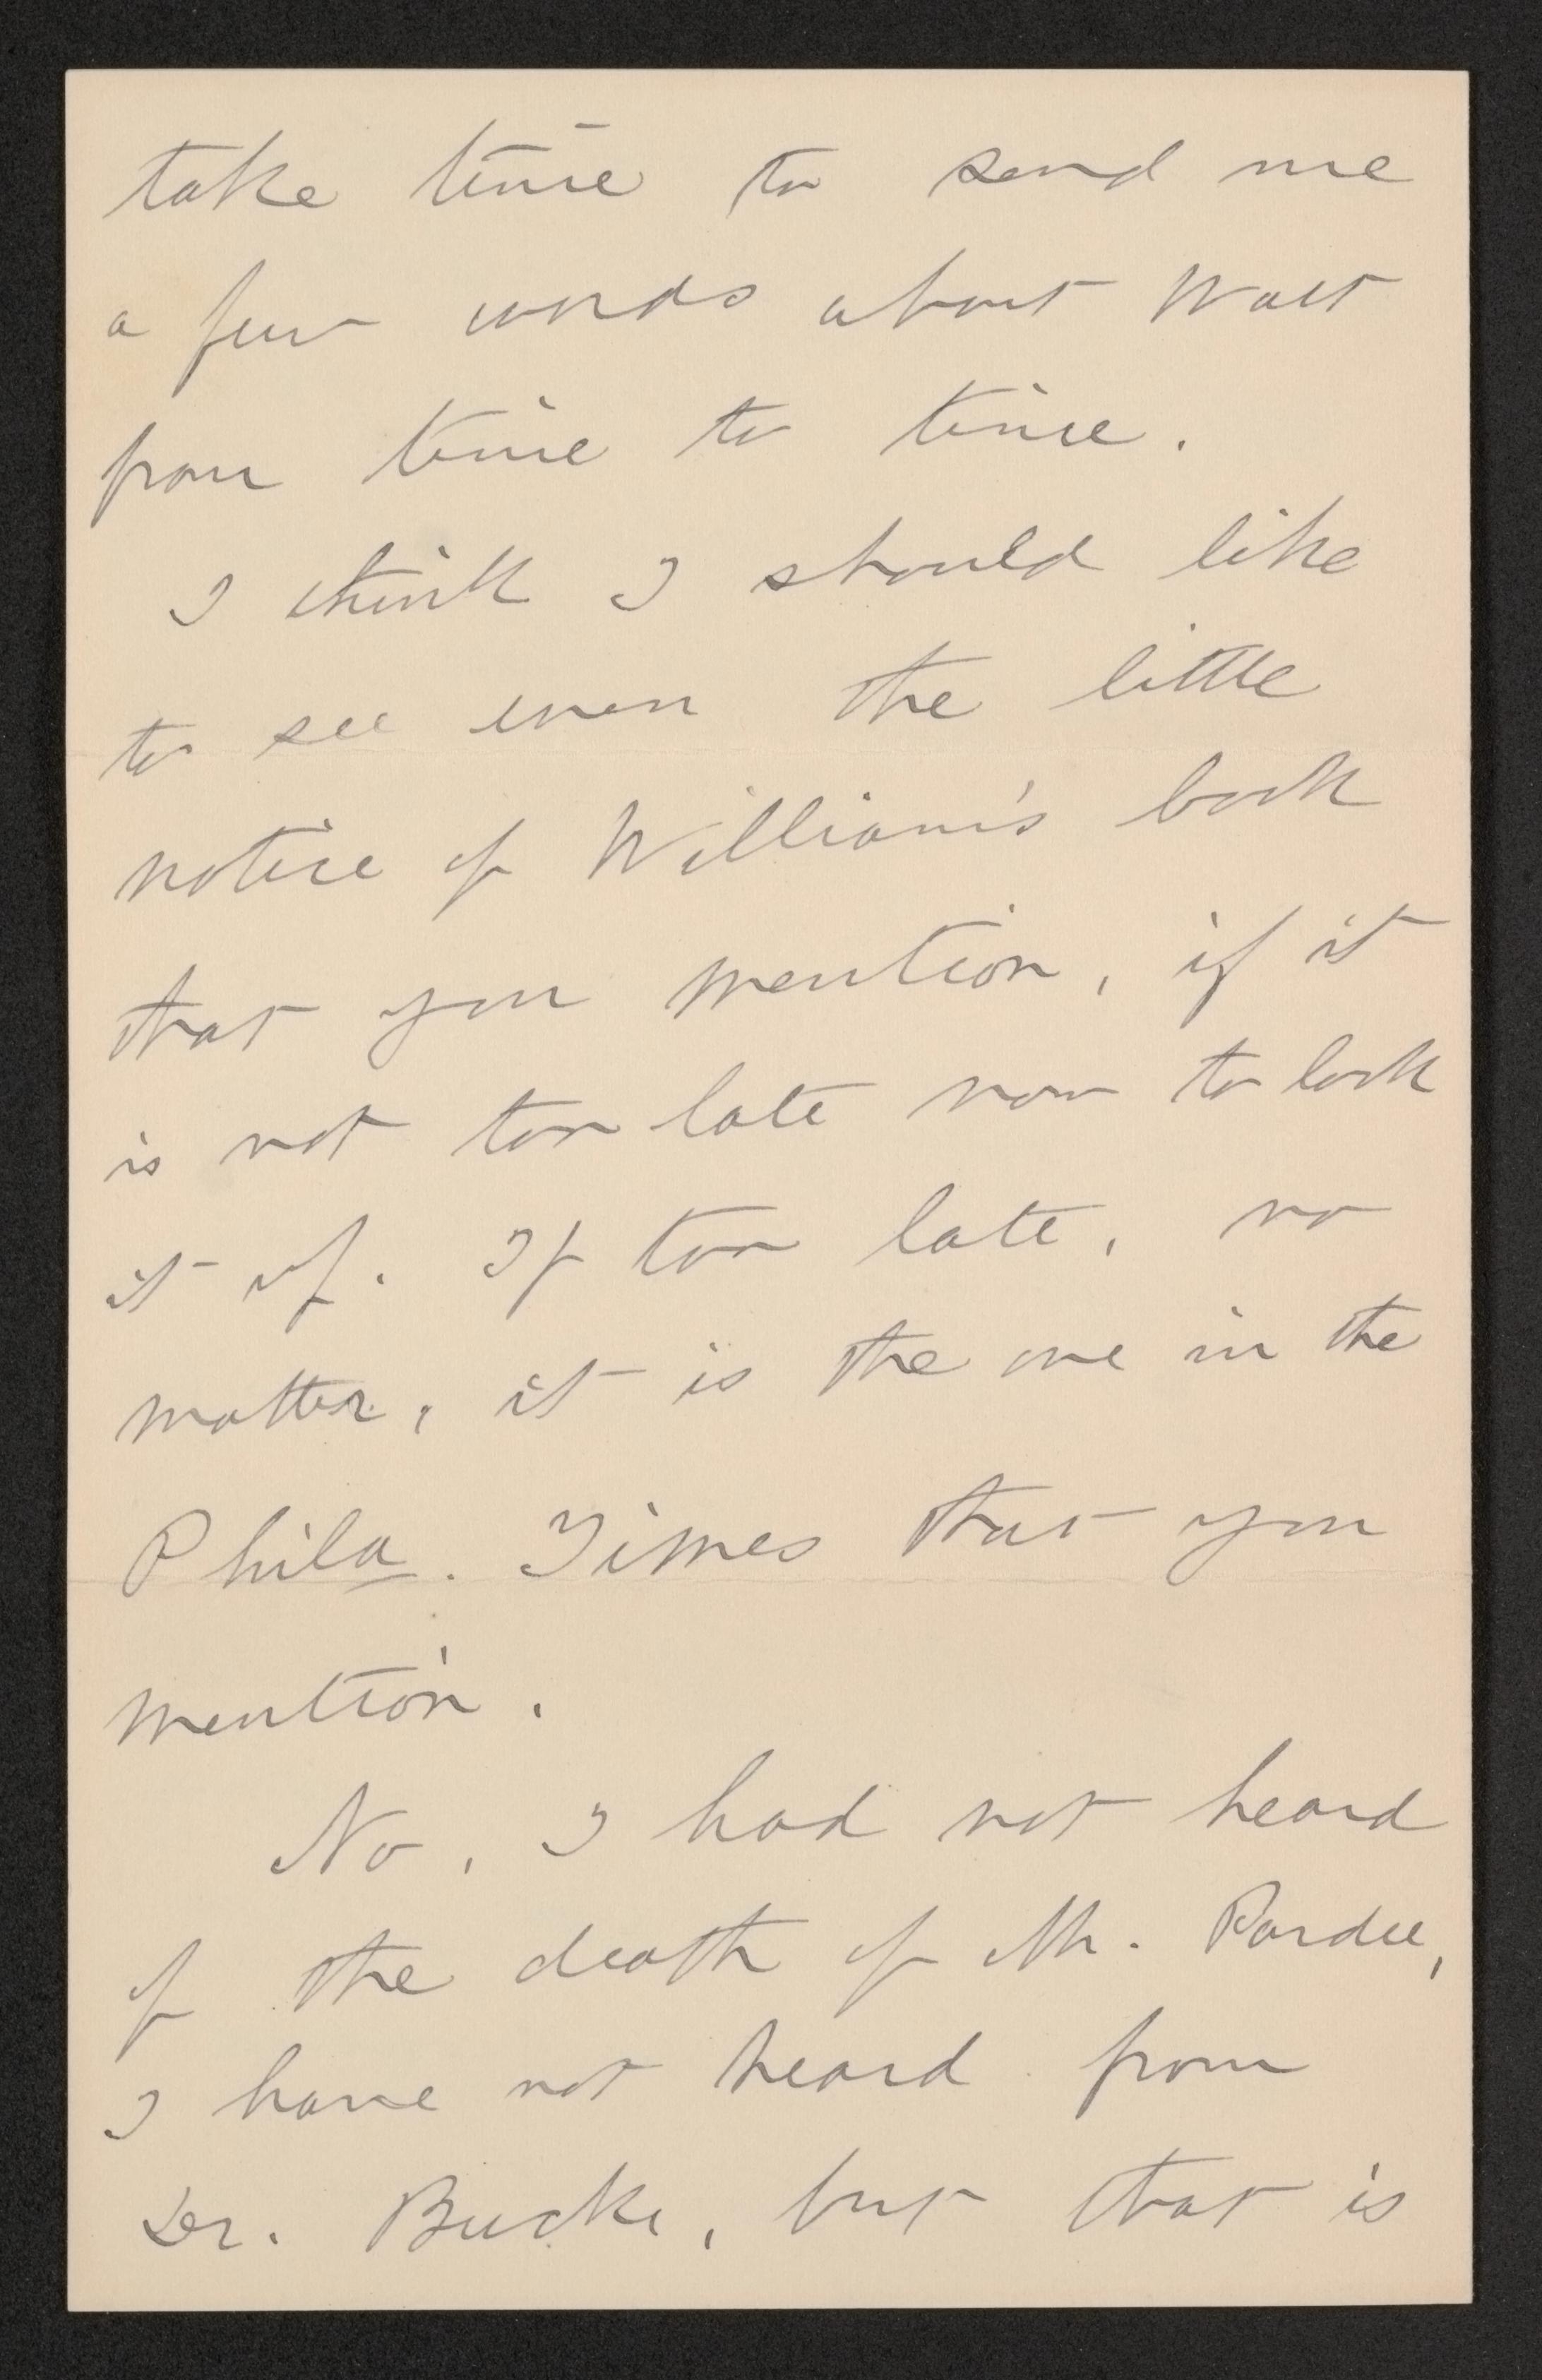 take time to send me
a few words about Walt
from time to time.
I think I should like
to see even the little
notice of William's book
that you mention, if it
is not too late now to look
it up. If too late, no
matter, it is the one in the
Phila. Times that you
mention.
No, I had not heard
of the death of Mr. Pardee,
I have not heard from
Dr. Bucke, but that is